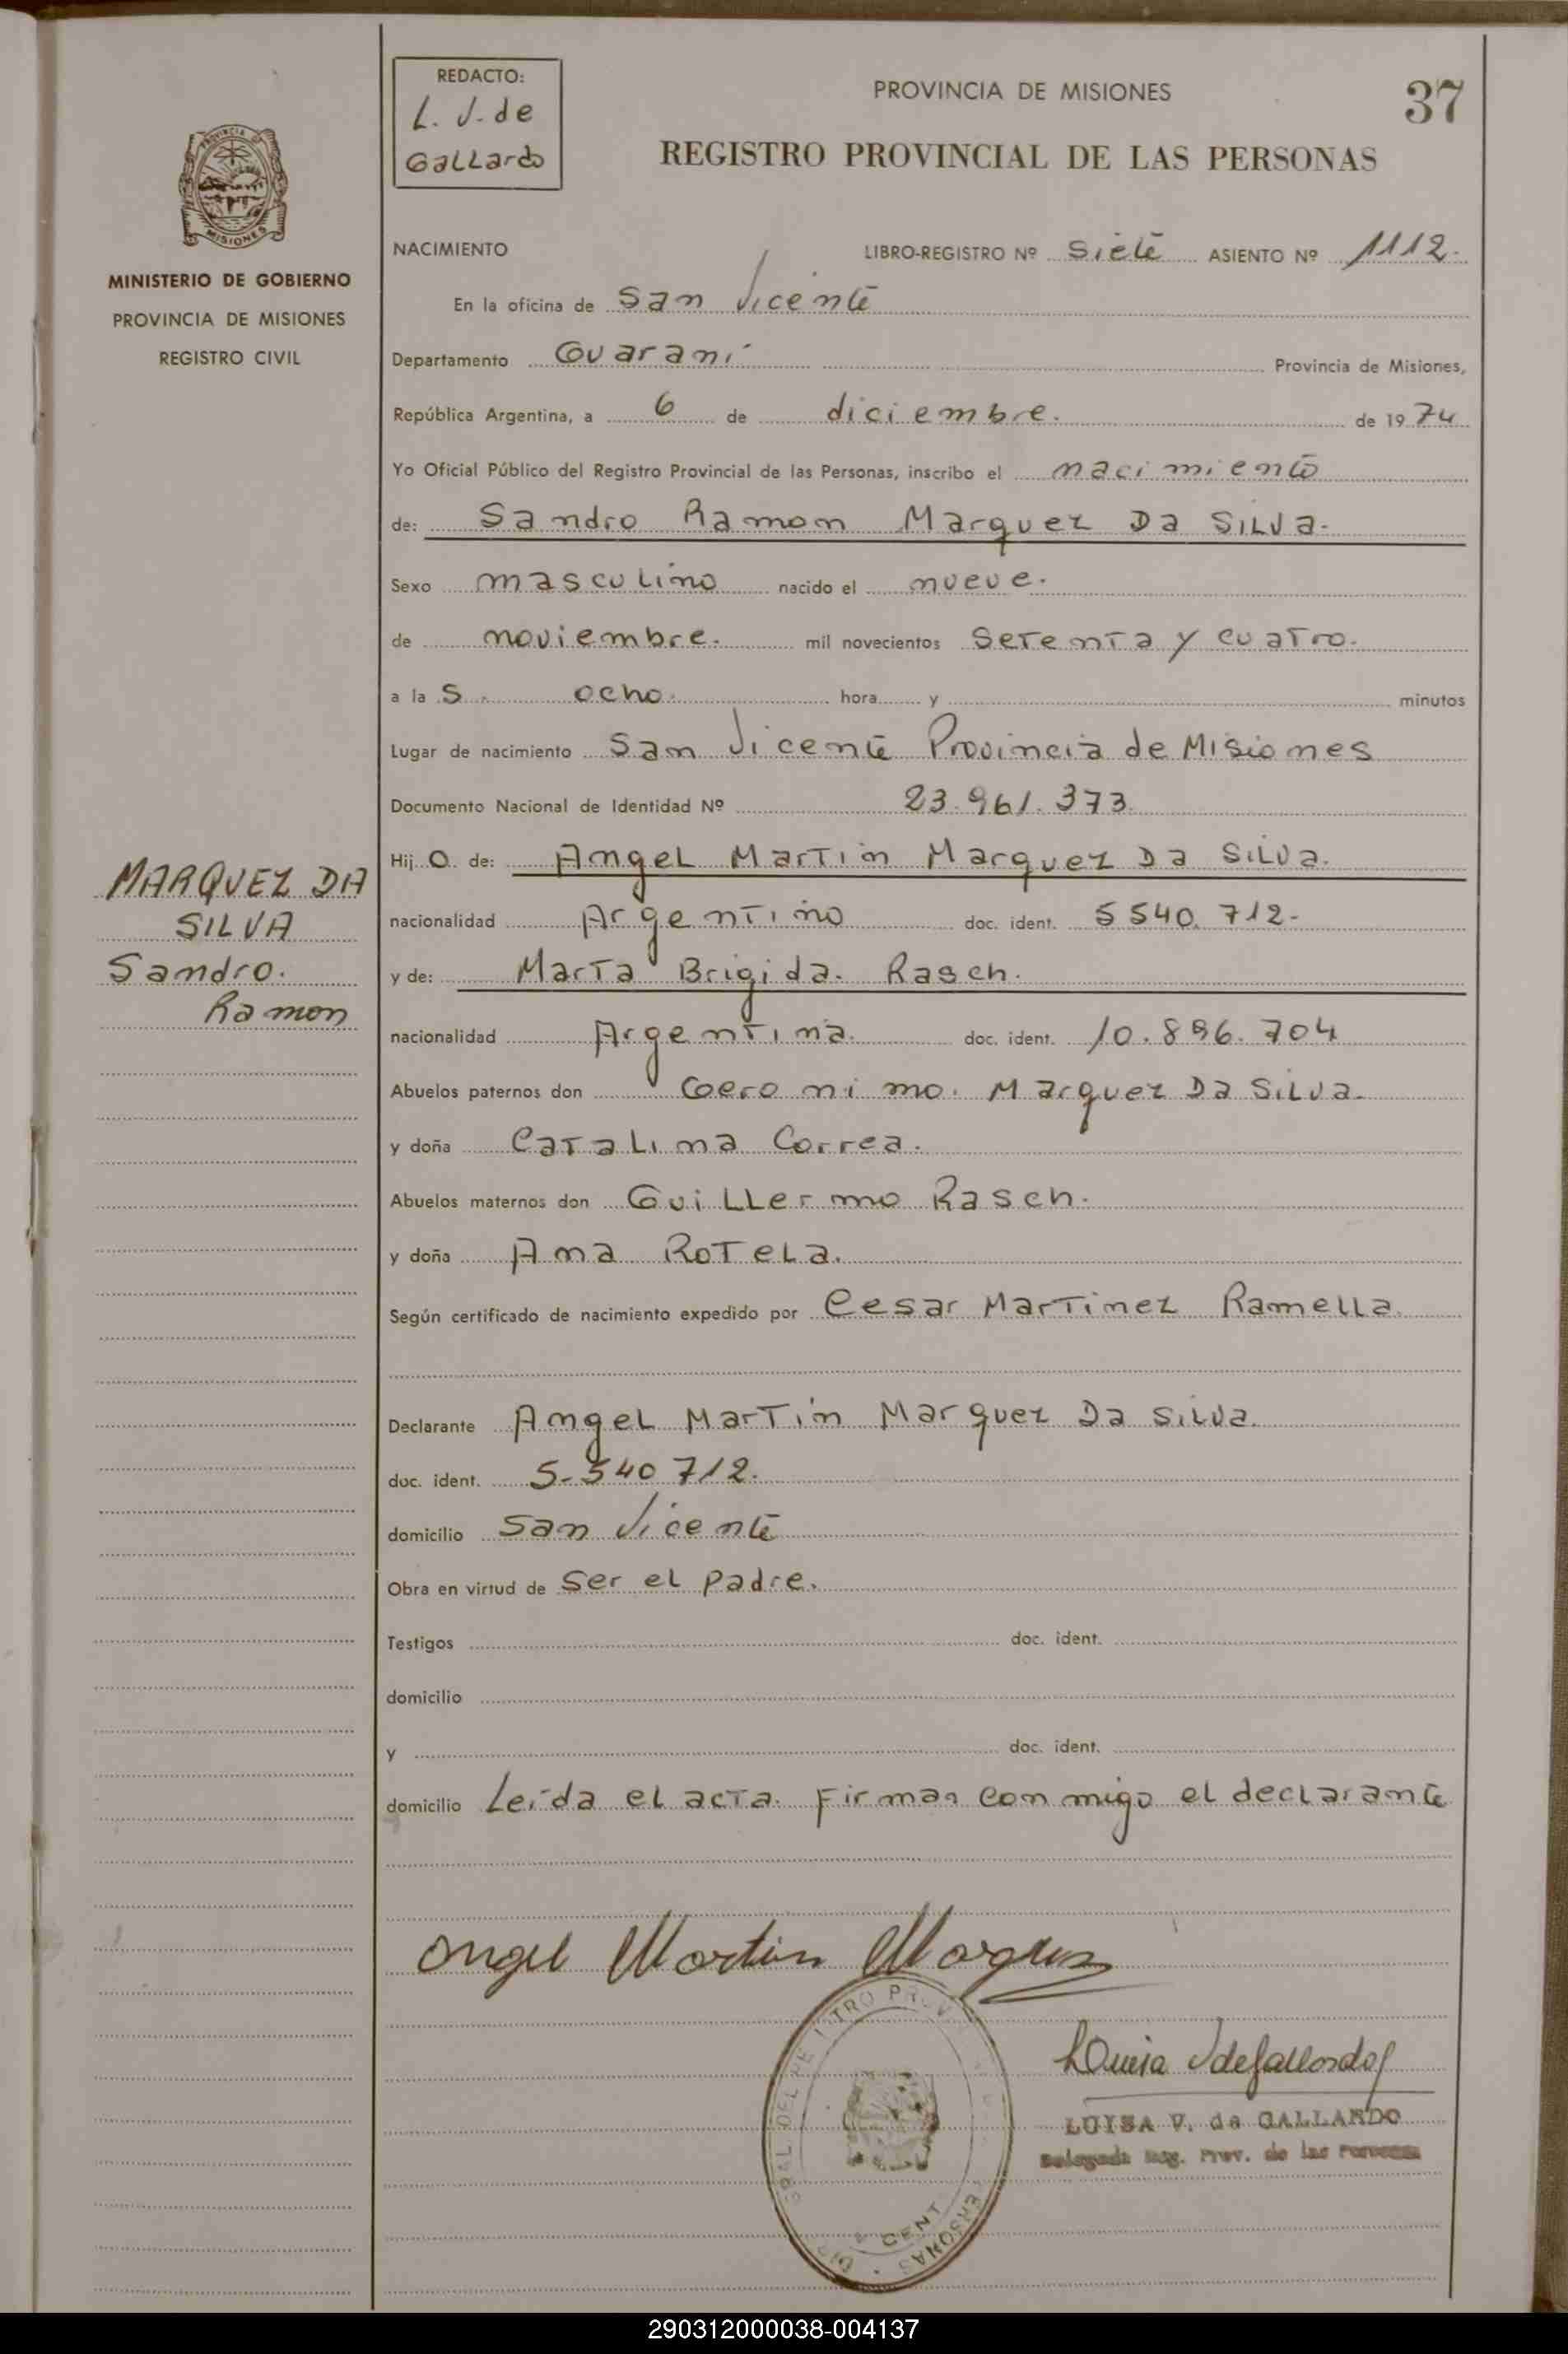 REDACTO:
L. V. de
Gallardo
PROVINCIA DE MISIONES
37
REGISTRO PROVINCIAL DE LAS PERSONAS
MISIONES
MINISTERIO DE GOBIERNO
PROVINCIA DE MISIONES
REGISTRO CIVIL
NACIMIENTO LIBRO-REGISTRO Nº Siete ASIENTO Nº 1112.
En la oficina de San Vicente
Departamento Guaraní Provincia de Misiones,
República Argentina, a 6 de diciembre. de 1974
Yo Oficial Público del Registro Provincial de las Personas, inscribo el nacimiento
de: Sandro Ramon Marquez Da Silva.
Sexo masculino nacido el nueve.
de noviembre. mil novecientos setenta y cuatro.
a la s. ocho. hora y minutos
Lugar de nacimiento San Vicente Provincia de Misiones
Documento Nacional de Identidad Nº 23.961.373.
Hij o. de: Angel Martin Marquez Da Silva.
nacionalidad Argentino doc. ident. 5540.712.
y de: Marta Brigida. Rasch.
nacionalidad Argentina. doc. ident. 10.896.704
Abuelos paternos don Geronimo. Marquez Da Silva.
y doña Catalina Correa.
Abuelos maternos don Guillermo Rasch.
y doña Ana Rotela.
Según certificado de nacimiento expedido por Cesar Martinez Ramella.
Declarante Angel Martin Marquez Da Silva.
doc. ident. 5-540 712.
domicilio San Vicente
Obra en virtud de Ser el padre.
Testigos doc. ident.
domicilio
y doc. ident.
domicilio Leída el acta. Firman con migo el declarante
MARQUEZ DA
SILVA
Sandro.
Ramon
Angel Martin Marquez
LUISA V. de GALLARDO
Delegada Reg. Prov. de las Personas
290312000038-004137